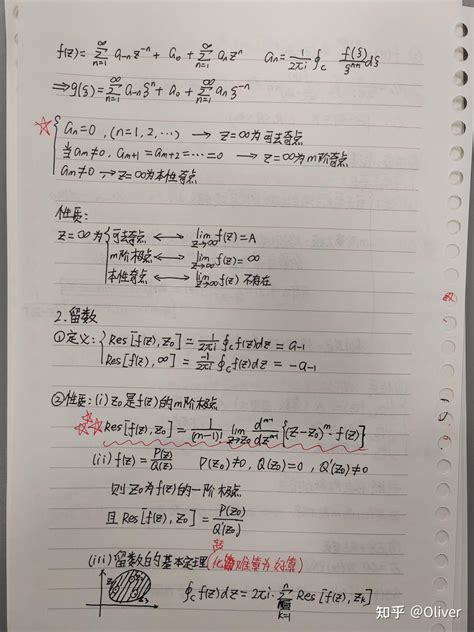 f(z) = ∑_{n=1}^{∞} a_{-n} z^{-n} + a_0 + ∑_{n=1}^{∞} a_n z^n    a_n = \frac{1}{2πi} ∮_C \frac{f(ξ)}{ξ^{n+1}} dξ
⇒ g(ξ) = ∑_{n=1}^{∞} a_{-n} ξ^n + a_0 + ∑_{n=1}^{∞} a_n ξ^{-n}
☆ a_n = 0 , (n=1, 2, …) → z=∞为可去奇点
当a_m≠0, a_{m+1} = a_{m+2} = … = 0 → z=∞为m阶奇点
a_m≠0 → z=∞为本性奇点
性质:
z=∞为 可去奇点 ⟷ lim_{z→∞} f(z) = A
m阶极点 ⟷ lim_{z→∞} f(z) = ∞
本性奇点 ⟷ lim_{z→∞} f(z) 不存在
2. 留数
①定义: Res[f(z), z_0] = \frac{1}{2πi} ∮_C f(z)dz = a_{-1}
Res[f(z), ∞] = \frac{-1}{2πi} ∮_C f(z)dz = -a_{-1}
②性质: (i) z_0是f(z)的m阶极点
☆☆ Res[f(z), z_0] = \frac{1}{(m-1)!} lim_{z→z_0} \frac{d^{m-1}}{dz^{m-1}} {(z-z_0)^m · f(z)}
(ii) f(z) = \frac{P(z)}{Q(z)}    P(z_0)≠0, Q(z_0)=0, Q'(z_0)≠0
则z_0为f(z)的一阶极点
且 Res[f(z), z_0] = \frac{P(z_0)}{Q'(z_0)}
(iii) 留数的基本定理 (化难算为好算)
∮_C f(z)dz = 2πi · ∑_{k=1}^{n} Res[f(z), z_k]
知乎 @Oliver